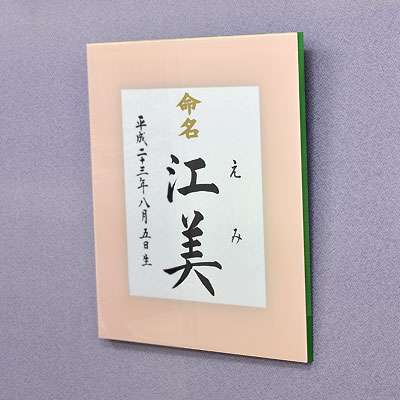 命名
えみ
江美
平成二十三年八月五日生